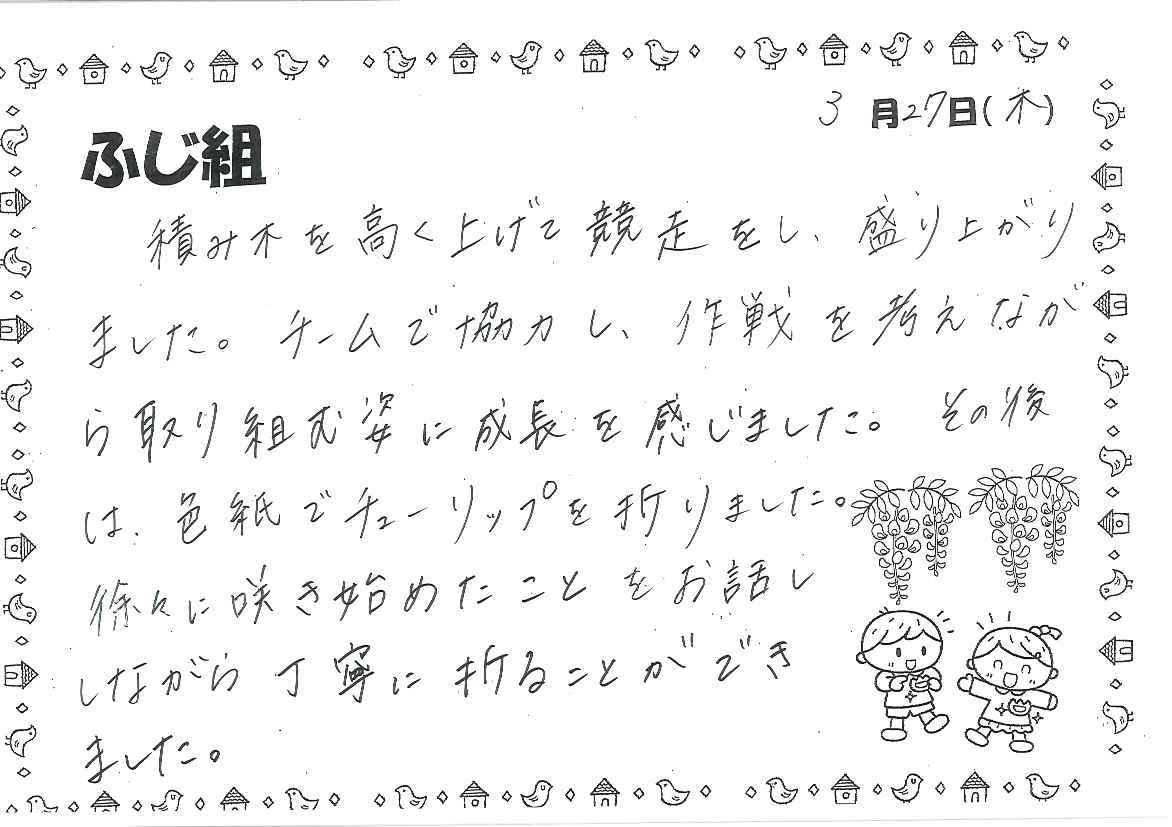 3月27日(木)
ふじ組
積み木を高く上げて競走をし、盛り上がり
ました。チームで協力し、作戦を考えなが
ら取り組む姿に成長を感じました。その後
は、色紙でチューリップを折りました。
徐々に咲き始めたことをお話し
しながら丁寧に折ることができ
ました。